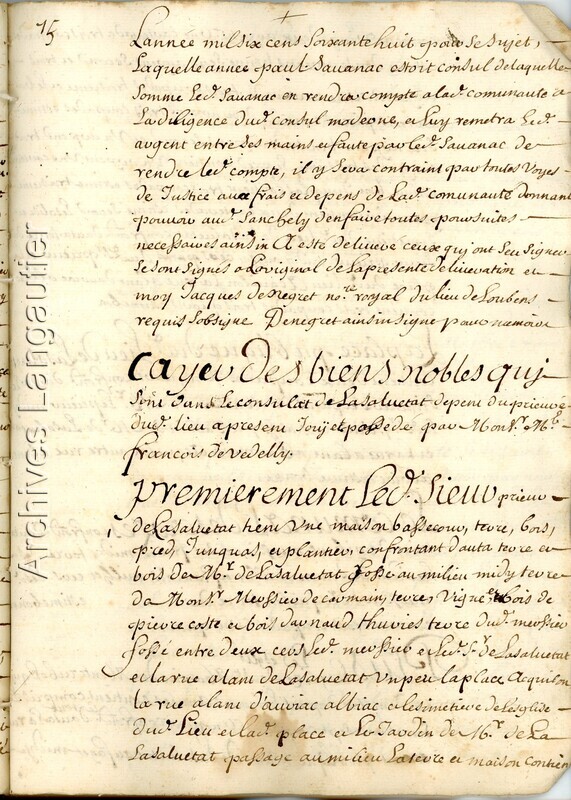 15
Lannee mil six cens soixante huit pour se sujet,
Laquelle annee paul Savanac estoit consul de laquelle
somme Led. Savanac en rendra compte a lad. comunauté a
La diligence dud. consul moderne, et luy remetra Led.
argent entre ses mains et faute par led. Savanac de
rendre led. compte, il y seva contraint par toutes voyes
de Justice aux frais et depens de Lad. comunauté donnant
pouvoir aud. Sanchely d'en faire toutes poursuites
necessaires ainsin A esté deliueré ceux quj ont seu signer
se sont signes a Loriginal de la presente deliueration et
moy Jacques de Negret no.re royal du lieu de Loubens
requis sobsigne Denegret ainsin signe
Cayer des biens nobles quj
sont dans Le consulat de Lasaluetat depen du prieuré
dud. lieu a present Jouj et possede par Mons.r M.e
francois de vedelly.
Premierement Led. Sieur prieur
de Lasaluetat tient Vne maison bassecour, terre, bois,
pred, Junquas, et plantier, confrontant d'auta terre et
bois de M.r de Lasaluetat fossé au milieu midy terre
de Mons.r Messier de carmain, terre, Vigne, et bois de
pierre coste et bois d'arnaud thuries terre dud. messier
fossé entre deux cers led. messier et led. s.r de Lasaluetat
et la rue alant de Lasaluetat Vn peu la place Aquilon
la rue alant d'auriac albiac et le simetiere de Leglise
dud. Lieu et lad. place et Le Jardin de M.r de La
Lasaluetat passage au milieu La terre et maison contien
Archives Langautier